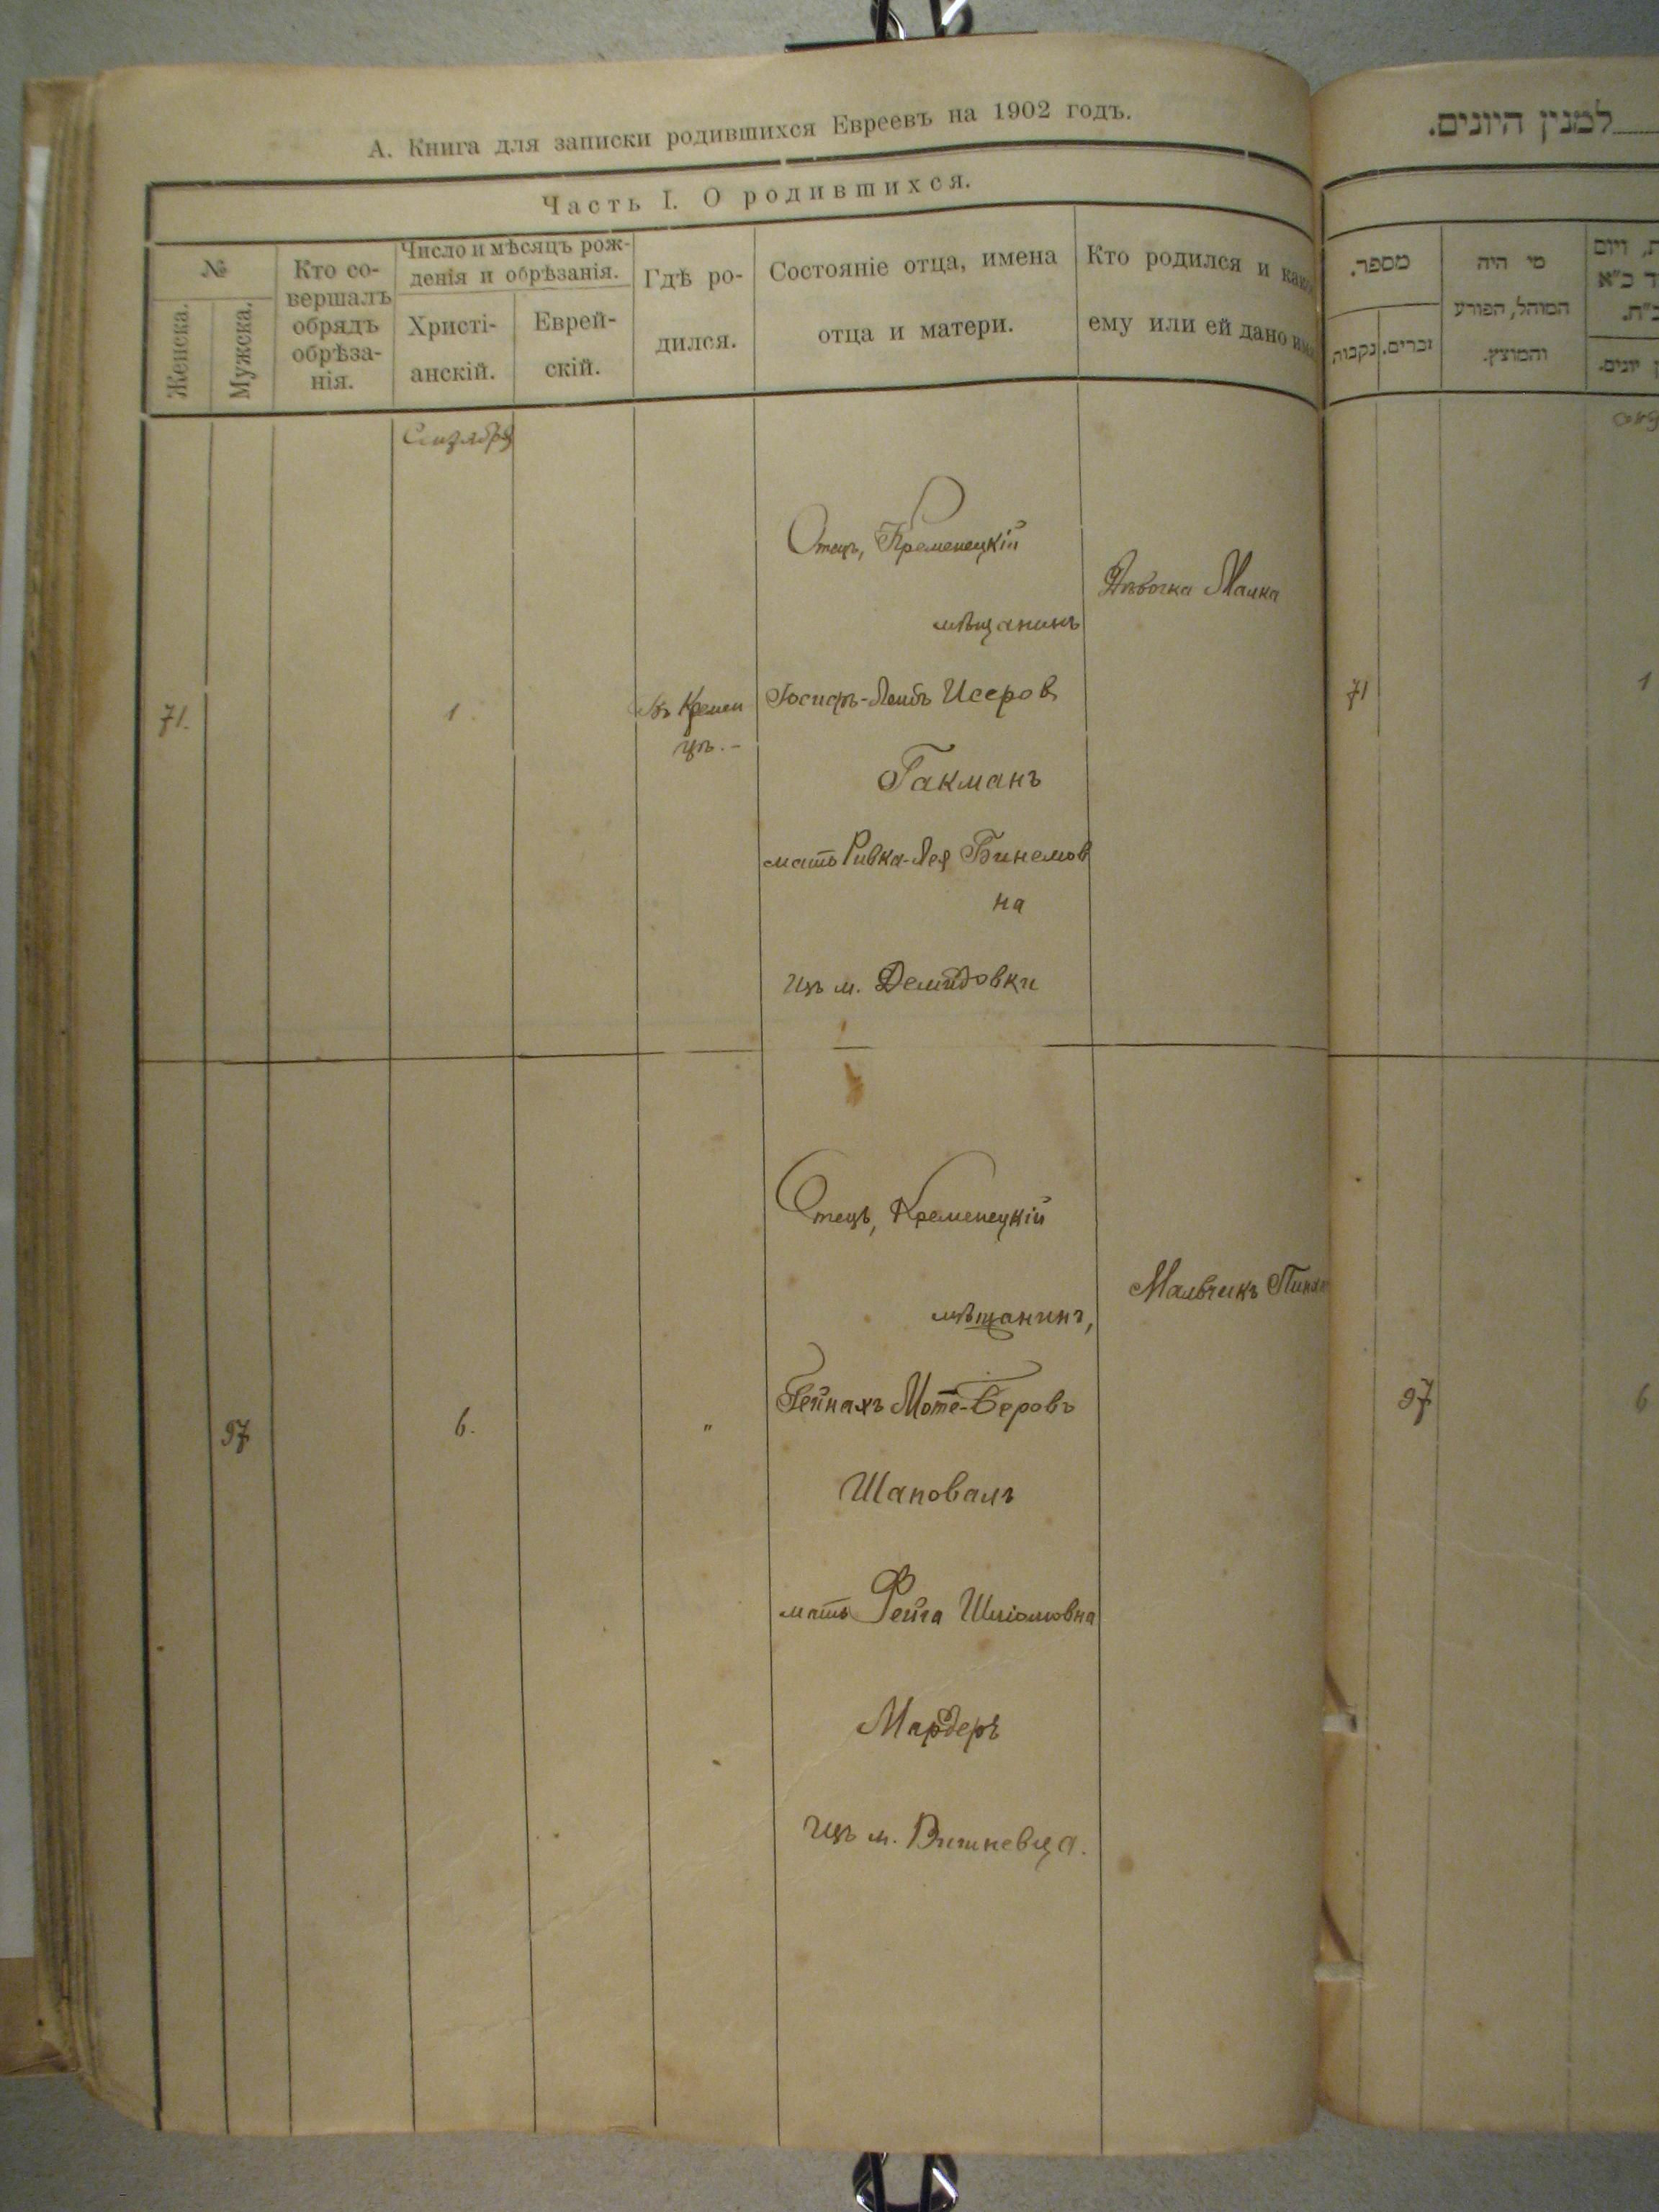 А. Книга для записки родившихся Евреевъ на 1902 годъ.
Часть I. О родившихся.
№
Женска.
Мужска.
Кто со-
вершалъ
обрядъ
обрѣза-
нія.
Число и мѣсяцъ рож-
денія и обрѣзанія.
Христі-
анскій.
Еврей-
скій.
Гдѣ ро-
дился.
Состояніе отца, имена
отца и матери.
Кто родился и како
ему или ей дано имя
Сентября
71.
1.
Въ Кремен
цѣ.-
Отецъ, Кременецкій
мѣщанинъ
Іосифъ-Лейбъ Исеров
Гакманъ
мать Ривка-Лея Бинемов
на
изъ м. Демидовки
Дѣвочка Малка
97
6.
"
Отецъ, Кременецкій
мѣщанинъ,
Гейнахъ Моте-Беровъ
Шаповалъ
мать Фейга Шліомовна
Мардеръ
изъ м. Вишневца.
Мальчикъ
למנין היונים.
מספר.
נקבות
זכרים.
מי היה
המוהל, הפורע
והמוצץ.
71
1
97
6